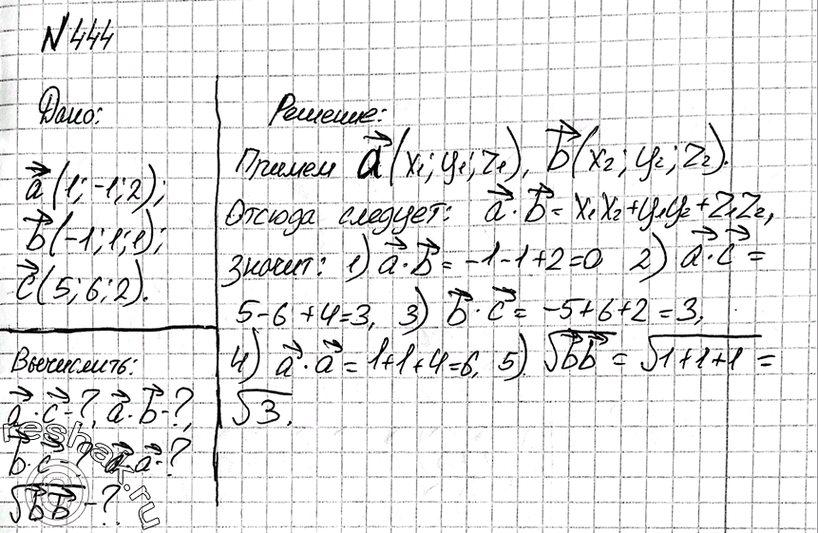 №444
Дано:
a⃗(1; -1; 2);
b⃗(-1; 1; 1);
c⃗(5; 6; 2).
Вычислить:
a⃗·c⃗-?, a⃗·b⃗-?,
b⃗·c⃗-? a⃗·a⃗-?
√b⃗b⃗-?
Решение:
Примем a⃗(x₁; y₁; z₁), b⃗(x₂; y₂; z₂).
Отсюда следует: a⃗·b⃗=x₁x₂+y₁y₂+z₁z₂,
значит: 1) a⃗·b⃗=-1-1+2=0 2) a⃗·c⃗=
5-6+4=3, 3) b⃗·c⃗=-5+6+2=3,
4) a⃗·a⃗=1+1+4=6, 5) √b⃗b⃗=√1+1+1=
√3.
reshak.ru